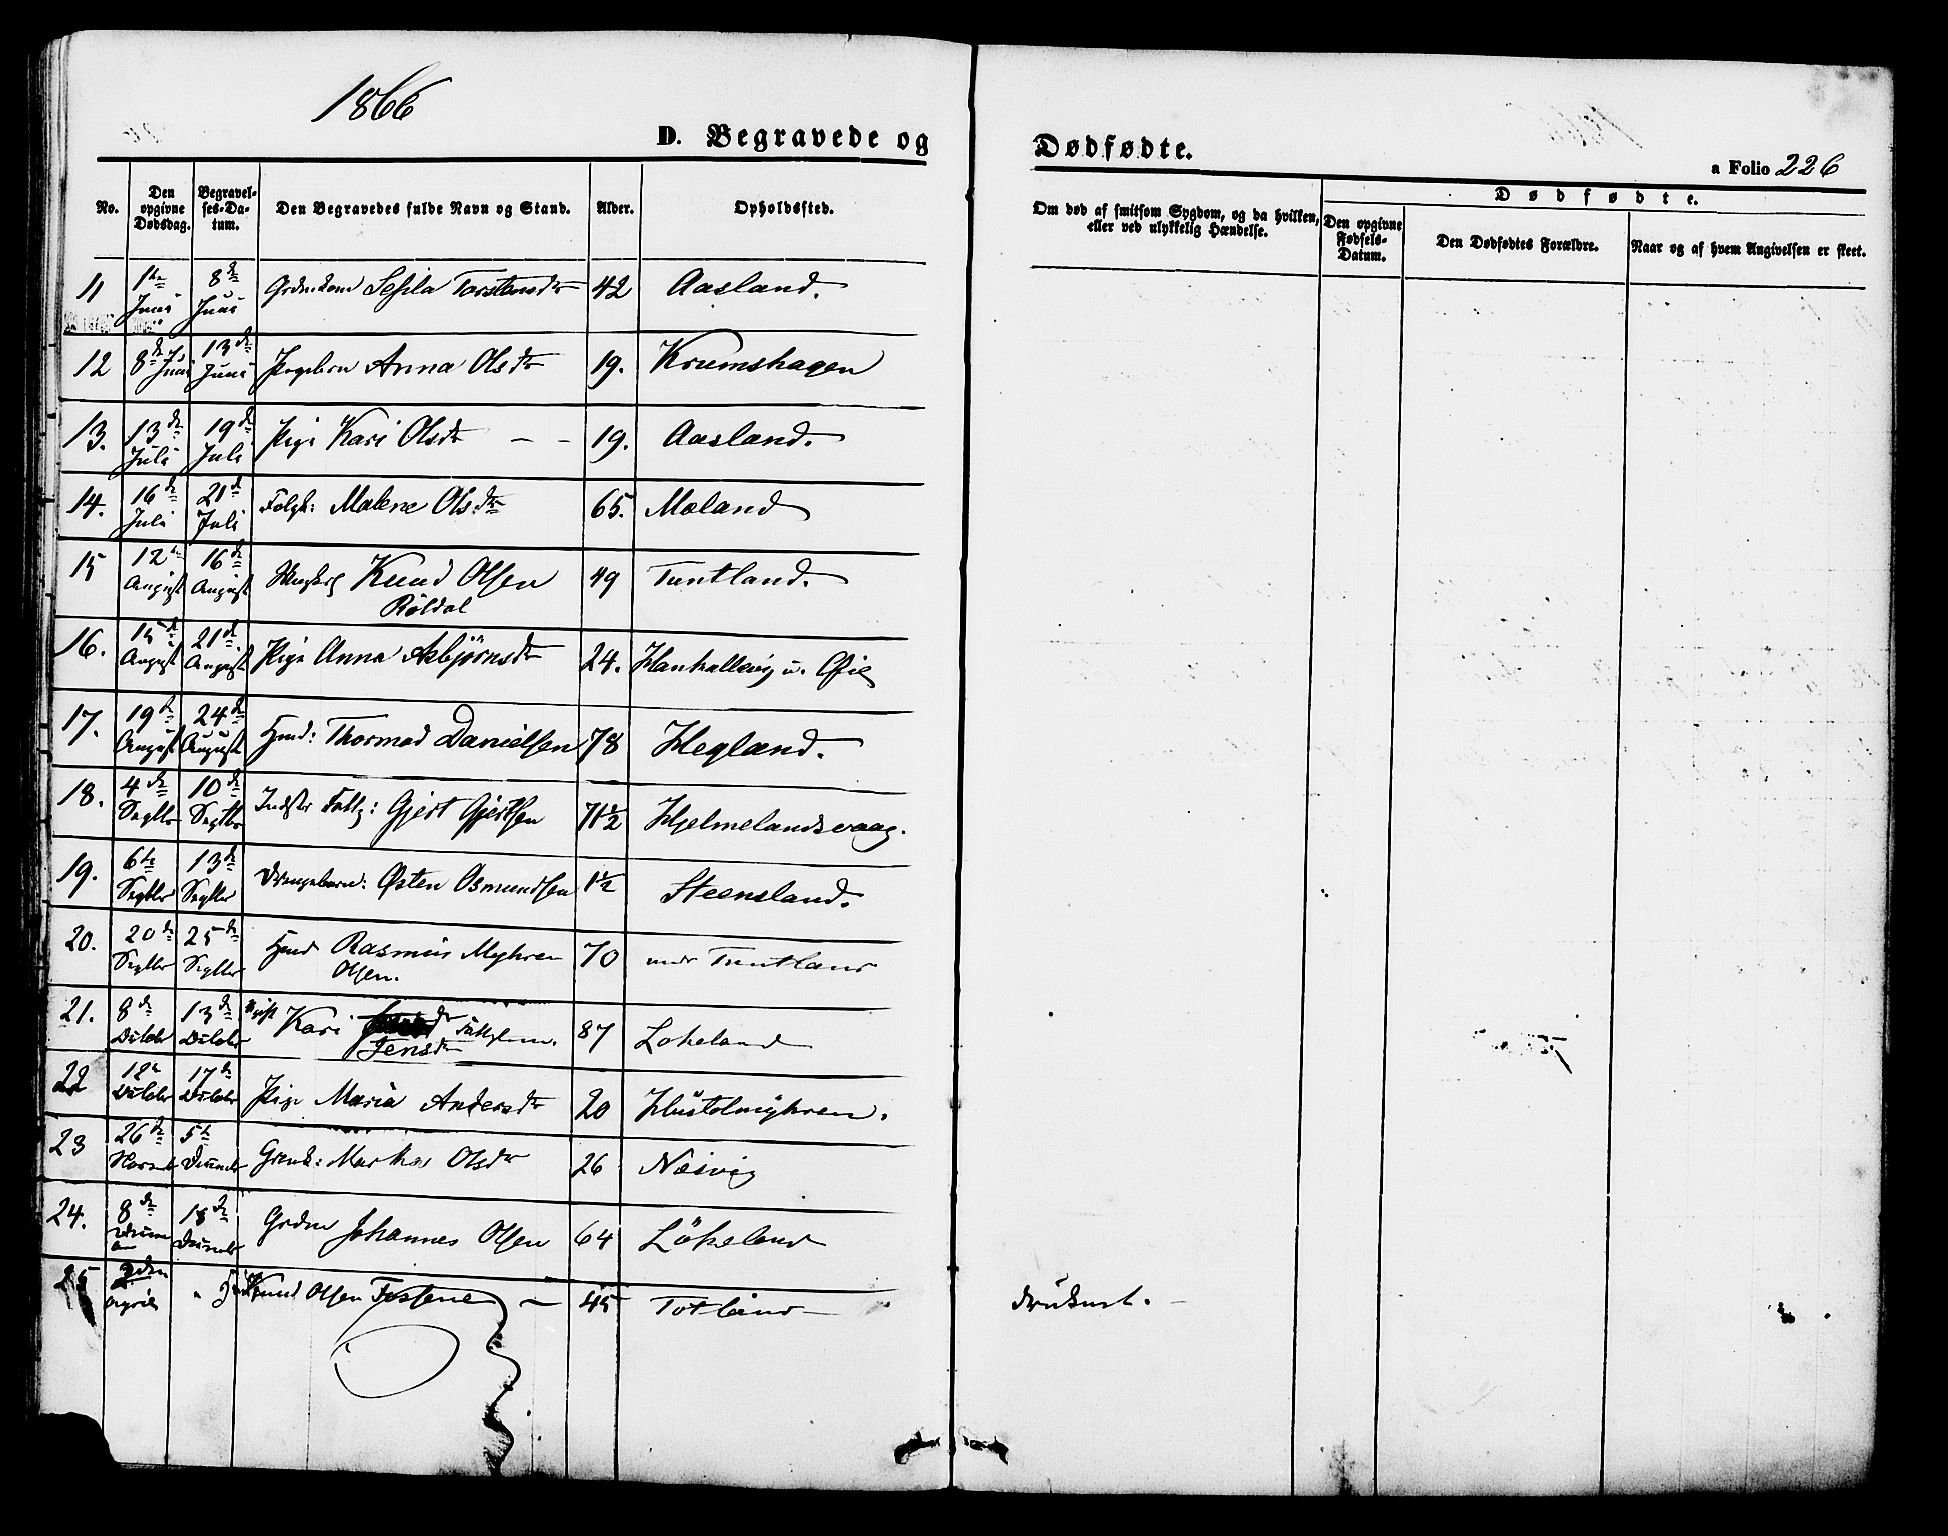 1866
D. Begravede og
Dødfødte.
a Folio 226
No.
Den opgivne Dødsdag.
Begravelses-Datum.
Den Begravedes fulde Navn og Stand.
Alder.
Opholdssted.
Om død af smitsom Sygdom, og da hvilken, eller ved ulykkelig Hændelse.
Dødfødte.
Den opgivne Fødsels-Datum.
Den Dødfødtes Forældre.
Naar og af hvem Angivelsen er skeet.
11 1ste Juni 8de Juni Sessila Torstensdr 42 Aasland.
12 8de Juni 13de Juni Pigebrn Anna Olsdr 19. Krumshagen
13. 13de Juli 19de Juli Pige Kari Olsdr – – 19. Aasland.
14. 16de Juli 21de Juli Malene Olsdr 65. Mæland
15 12te August 16de August Knud Olsen 49 Tuntland.
Röldal
16. 15de August 21de August Pige Anna Asbjörnsdr 24. u. Öie
17. 19de August 24de August Thormod Danielsen 78 Hegland.
18. 4de Septbr 10de Septbr Gjert Gjertsen 71½ Hjelmelandsvaag.
19. 6te Septbr 13de Septbr Drengebarn: Østen Osmundsen 1½ Steensland.
20. 20de Septbr 25de Septbr Rasmus Myhren 70 under Tuntland
Olsen.
21. 8de Octobr 13de Octobr Kari 87 Lökeland
Jensdr
22 12te Octobr 17de Octobr Pige Maria Andersdr 20 Hustolmyhren.
23 26de Novemb 5te Decemb Olsdr 26 Næsvig
24. 8de 15de Decembr Grdm Johannes Olsen 64 Lökeland
25 April " Knud Olsen 45 Totland
druknet. –